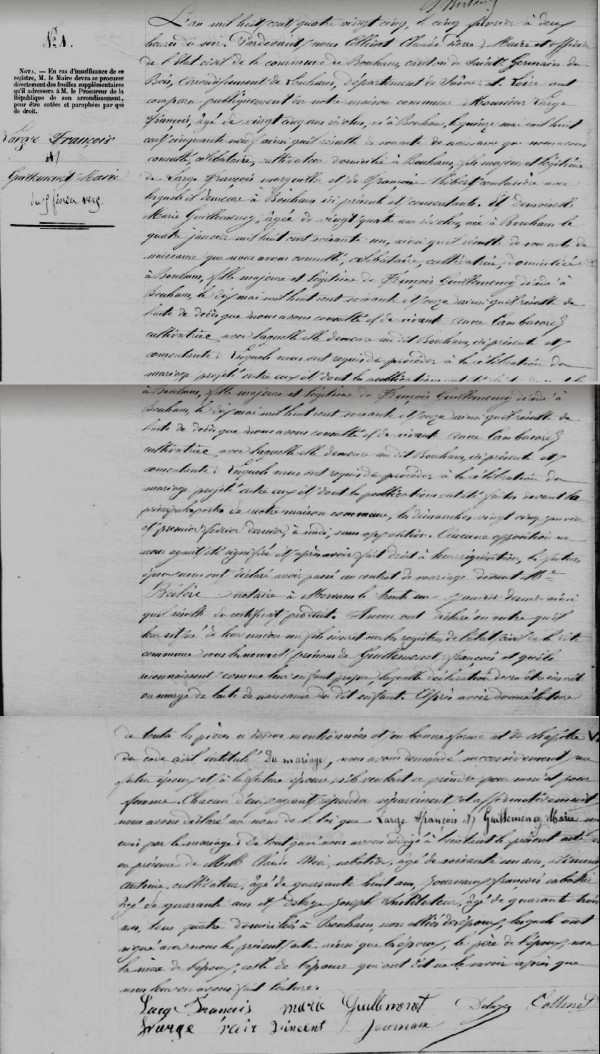 N° 1.
NOTA. — En cas d'insuffisance de ce
registre, M. le Maire devra se procurer
directement des feuilles supplémentaires
qu'il adressera à M. le Procureur de la
République de son arrondissement,
pour être cotées et paraphées par qui
de droit.
Large François
et
Guillemenet Marie
du 5 février 1885
L'an mil huit cent quatre vingt cinq, le cinq février à deux
heures du soir. Pardevant nous Collinot Claude Pierre Maire et officier
de l'état civil de la commune de Bouhans, canton de Saint Germain du
Bois, arrondissement de Louhans, département de Saône et Loire ont
comparu publiquement en notre maison commune Monsieur Large
François, âgé de vingt cinq ans révolus, né à Bouhans, le quinze mai mil huit
cent cinquante neuf ainsi qu'il résulte de son acte de naissance que nous avons
consulté, célibataire, cultivateur domicilié à Bouhans, fils majeur et légitime
de Large François et de Françoise cultivateurs avec
lesquels il demeure à Bouhans ici présents et consentants. Et demoiselle
Marie Guillemeney, âgée de vingt quatre ans révolus, née à Bouhans le
quatre janvier mil huit cent soixante un, ainsi qu'il résulte de son acte de
naissance que nous avons consulté, célibataire, cultivatrice, domiciliée
à Bouhans, fille majeure et légitime de François Guillemeney décédé à
Bouhans, le dix mai mil huit cent soixante et onze ainsi qu'il résulte de
l'acte de décès que nous avons consulté et de vivant Anne
cultivatrice, avec laquelle elle demeure au dit Bouhans, ici présente et
consentante. Lesquels nous ont requis de procéder à la célébration du
mariage projeté entre eux et dont les publications ont été
à Bouhans, fille majeure et légitime de François Guillemeney décédé à
Bouhans, le dix mai mil huit cent soixante et onze ainsi qu'il résulte de
l'acte de décès que nous avons consulté et de vivant Anne
cultivatrice, avec laquelle elle demeure au dit Bouhans, ici présente et
consentante. Lesquels nous ont requis de procéder à la célébration du
mariage projeté entre eux et dont les publications ont été faites devant la
principale porte de notre maison commune, les dimanches vingt cinq janvier
et premier février dernier, à midi, sans opposition. Aucune opposition ne
nous ayant été signifiée et après avoir fait droit à leur réquisition, les futurs
époux nous ont déclaré avoir passé un contrat de mariage devant Me
notaire à Mervans le trente un janvier dernier ainsi
qu'il résulte du certificat produit. Nous ont déclaré en outre qu'il
leur est né de leur union un fils inscrit sur les registres de l'état civil de la dite
commune sous les noms et prénoms de Guillemenet François et qu'ils
reconnaissent comme leur enfant propre, laquelle déclaration devra être inscrite
en marge de l'acte de naissance du dit enfant. Après avoir donné lecture
de toutes les pièces ci dessus mentionnées et en bonne forme et du chapitre VI
du code civil intitulé Du mariage, nous avons demandé successivement au
futur époux et à la future épouse s'ils veulent se prendre pour mari et pour
femme. Chacun d'eux ayant répondu séparément et affirmativement
nous avons déclaré au nom de la loi que Large François et Guillemeney Marie sont
unis par le mariage. De tout quoi nous avons rédigé à l'instant le présent acte
en présence de MM. Claude sabotier, âgé de soixante un ans,
Antoine, cultivateur, âgé de quarante huit ans, Journaux François sabotier
âgé de quarante ans et Delaye Joseph instituteur, âgé de quarante trois
ans, tous quatre domiciliés à Bouhans, non alliés des époux, lesquels ont
signé avec nous le présent acte ainsi que les époux, le père de l'époux, non
la mère de l'époux, celle de l'épouse qui ont dit ne le savoir après que
nous leur en avons fait lecture.
Large François marie Guillemenot Delaye Collinot
Large Vincent Journaux